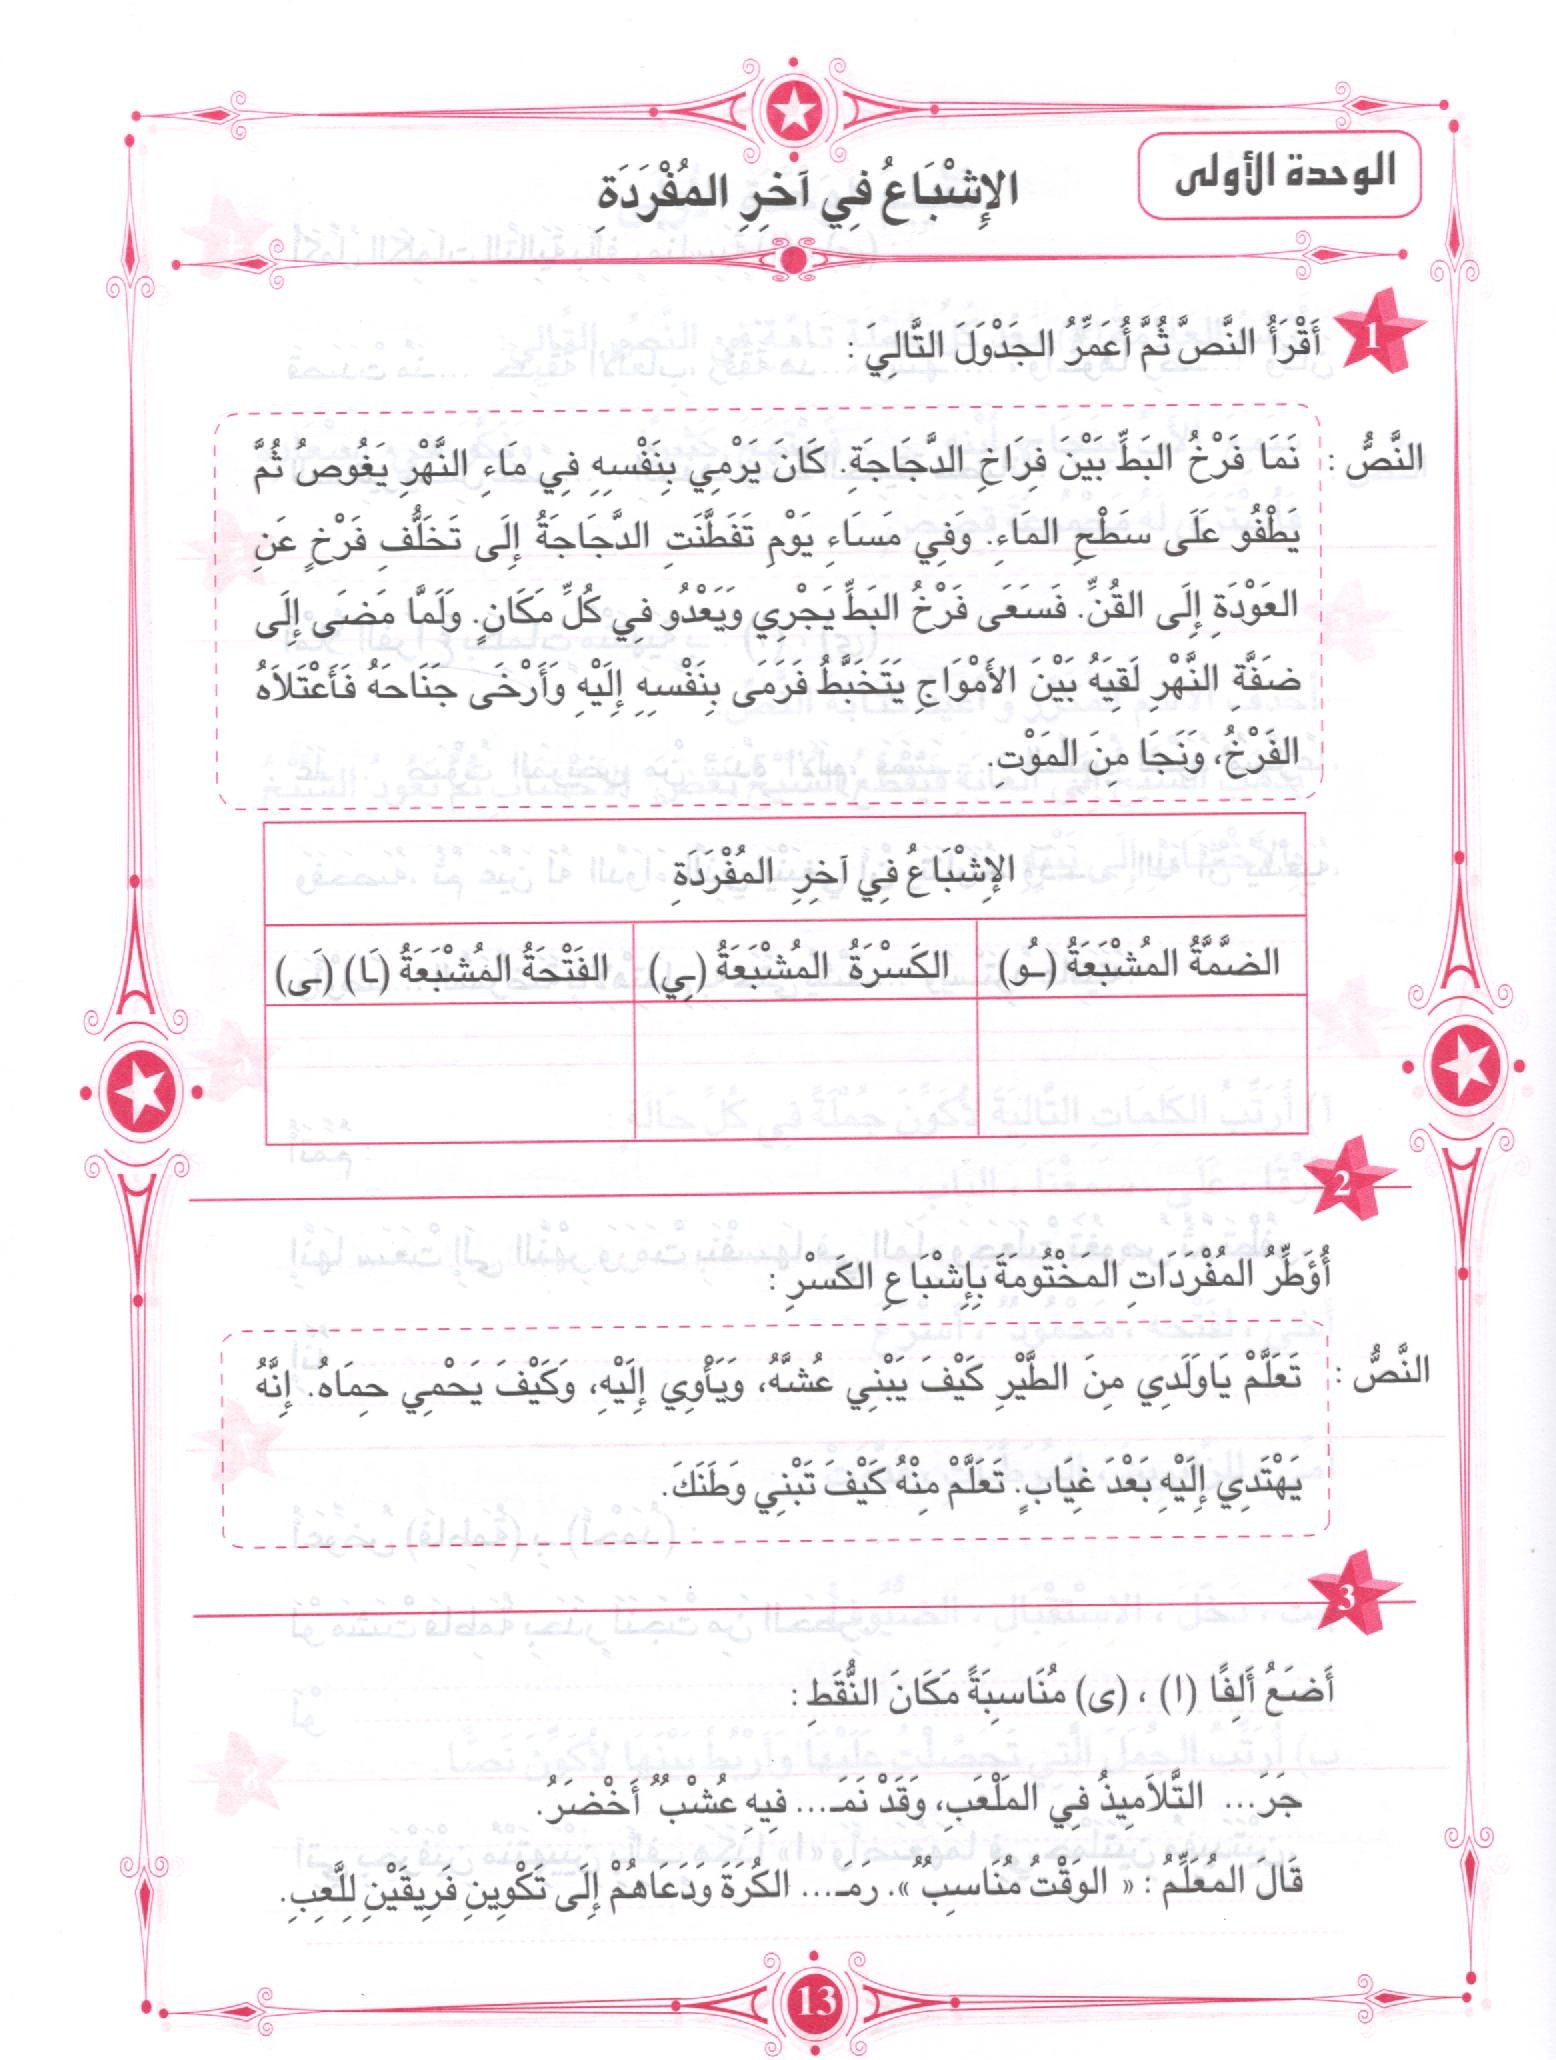 الوحدة الأولى
الإِشْبَاعُ فِي آخِرِ المُفْرَدَةِ
1
أَقْرَأُ النَّصَّ ثُمَّ أُعَمِّرُ الجَدْوَلَ التَّالِيَ :
النَّصُّ : نَمَا فَرْخُ البَطِّ بَيْنَ فِرَاخِ الدَّجَاجَةِ. كَانَ يَرْمِي بِنَفْسِهِ فِي مَاءِ النَّهْرِ يَغُوصُ ثُمَّ
يَطْفُو عَلَى سَطْحِ المَاءِ. وَفِي مَسَاءِ يَوْمٍ تَفَطَّنَتِ الدَّجَاجَةُ إِلَى تَخَلُّفِ فَرْخٍ عَنِ
العَوْدَةِ إِلَى القُنِّ. فَسَعَى فَرْخُ البَطِّ يَجْرِي وَيَعْدُو فِي كُلِّ مَكَانٍ. وَلَمَّا مَضَى إِلَى
ضَفَّةِ النَّهْرِ لَقِيَهُ بَيْنَ الأَمْوَاجِ يَتَخَبَّطُ فَرَمَى بِنَفْسِهِ إِلَيْهِ وَأَرْخَى جَنَاحَهُ فَأَعْتَلاَهُ
الفَرْخُ، وَنَجَا مِنَ المَوْتِ.
الإِشْبَاعُ فِي آخِرِ المُفْرَدَةِ
الضَّمَّةُ المُشْبَعَةُ (ـُو) الكَسْرَةُ المُشْبَعَةُ (ـِي) الفَتْحَةُ المُشْبَعَةُ (ـَا) (ـَى)
2
أُؤَطِّرُ المُفْرَدَاتِ المَخْتُومَةَ بِإِشْبَاعِ الكَسْرِ :
النَّصُّ : تَعَلَّمْ يَاوَلَدِي مِنَ الطَّيْرِ كَيْفَ يَبْنِي عُشَّهُ، وَيَأْوِي إِلَيْهِ، وَكَيْفَ يَحْمِي حِمَاهُ. إِنَّهُ
يَهْتَدِي إِلَيْهِ بَعْدَ غِيَابٍ. تَعَلَّمْ مِنْهُ كَيْفَ تَبْنِي وَطَنَكَ.
3
أَضَعُ أَلِفًا (ا) ، (ى) مُنَاسِبَةً مَكَانَ النُّقَطِ :
جَرَ... التَّلاَمِيذُ فِي المَلْعَبِ، وَقَدْ نَمَـ... فِيهِ عُشْبٌ أَخْضَرُ.
قَالَ المُعَلِّمُ : « الوَقْتُ مُنَاسِبٌ ». رَمَـ... الكُرَةَ وَدَعَاهُمْ إِلَى تَكْوِينِ فَرِيقَيْنِ لِلَّعِبِ.
13